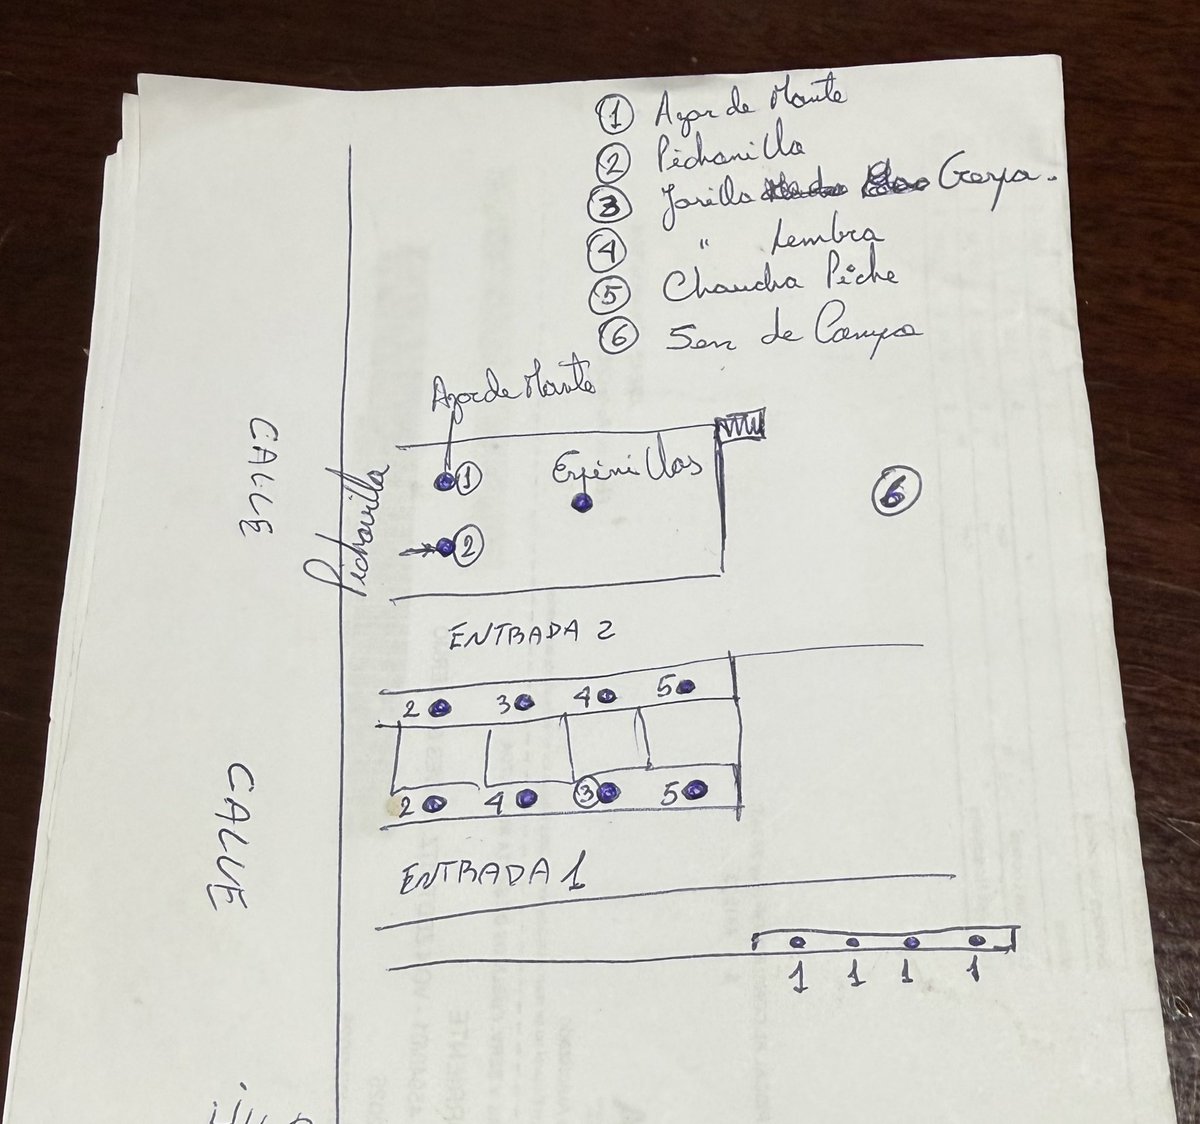 1 Azar de Monte
2 Pichanilla
3 Jarilla Crespa.
4 " Hembra
5 Chaucha Piche
6 Sen de Campo
Azar de Monte
CALLE
Pichanilla
1
Espinillos
6
2
ENTRADA 2
2 3 4 5
CALLE
2 4 3 5
ENTRADA 1
1 1 1 1